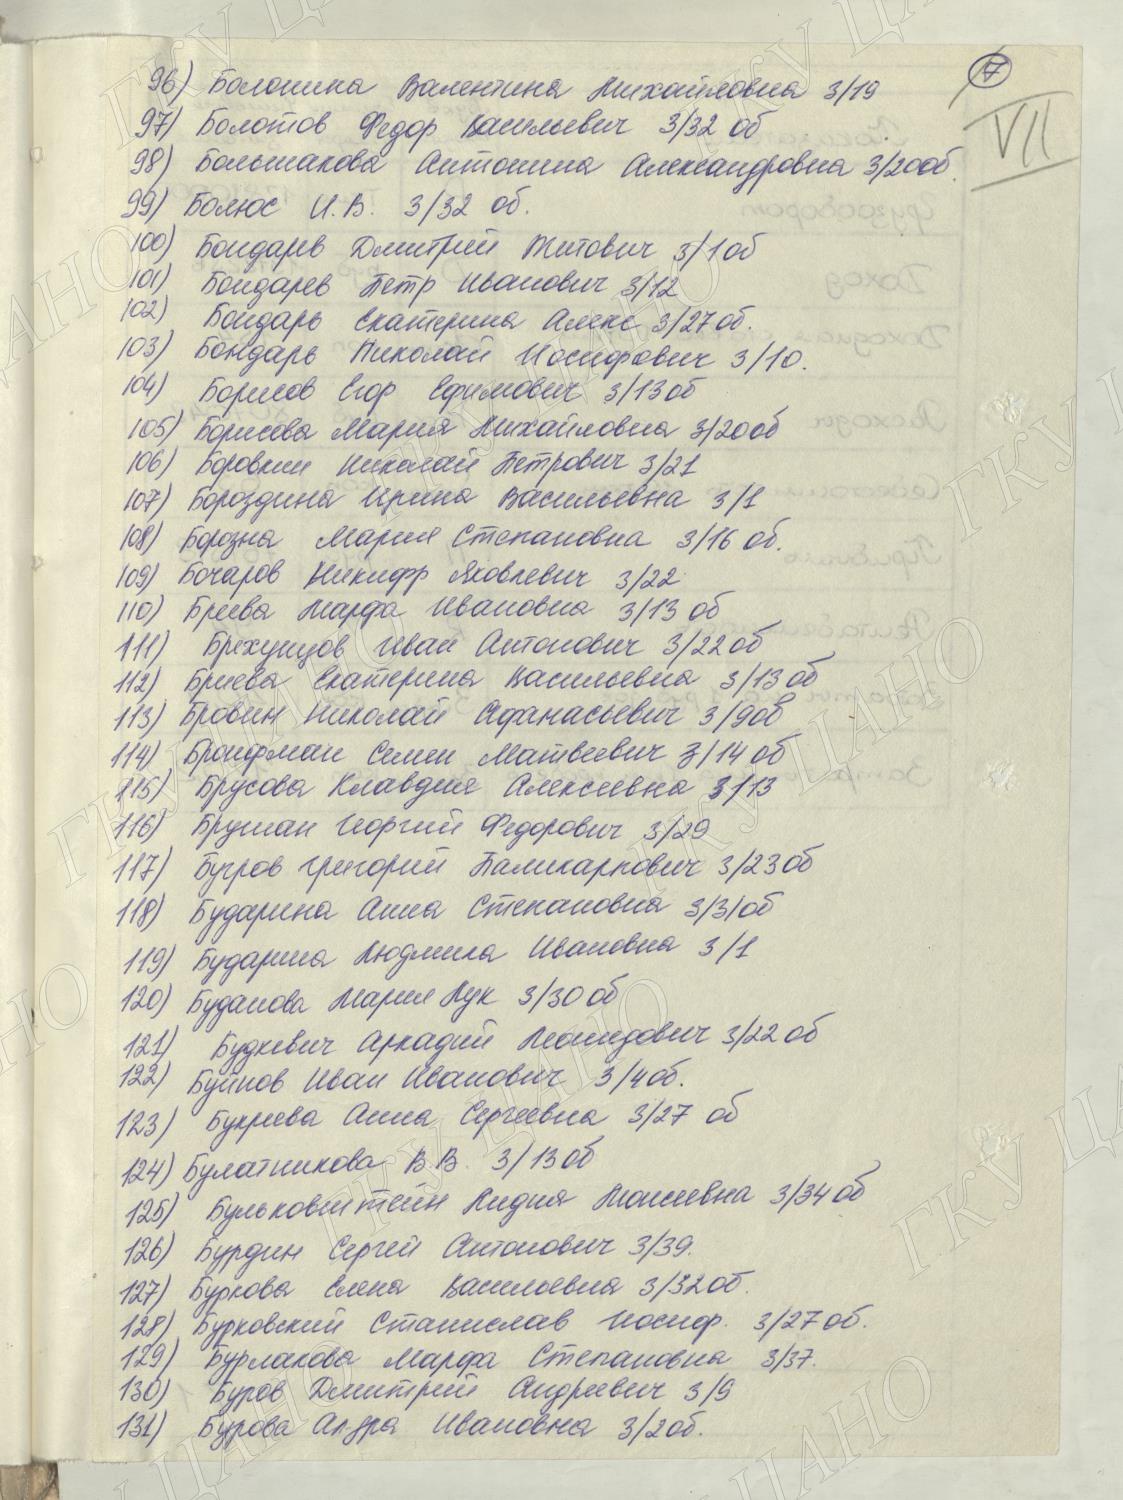 7
VII
96) Болонина Валентина Михайловна 3/19
97) Болотов Федор Васильевич 3/32 об
98) Большакова Антонина Александровна 3/20об.
99) Болюс И.В. 3/32 об.
100) Бондарев Дмитрий Титович 3/1об
101) Бондарев Петр Иванович 3/12
102) Бондарь Екатерина Алекс 3/27об.
103) Бондарь Николай Иосифович 3/10.
104) Борисов Егор Ефимович 3/13об
105) Борисова Мария Михайловна 3/20об
106) Боровкин Николай Петрович 3/21
107) Бороздина Ирина Васильевна 3/1
108) Борозна Мария Степановна 3/16 об.
109) Бочаров Никифр Яковлевич 3/22
110) Бреева Марфа Ивановна 3/13 об
111) Брехунцов Иван Антонович 3/22об
112) Бриева Екатерина Васильевна 3/13об
113) Бровин Николай Афанасьевич 3/9об
114) Бронфман Семен Матвеевич 3/14 об
115) Брусова Клавдия Алексеевна 3/13
116) Брушан Георгий Федорович 3/29
117) Бугров Григорий Паликарпович 3/23об
118) Бударина Анна Степановна 3/31об
119) Бударина Людмила Ивановна 3/1
120) Буданова Мария Лук 3/30 об
121) Будкевич Аркадий Леонидович 3/22 об
122) Буйнов Иван Иванович 3/4об.
123) Букреева Анна Сергеевна 3/27 об
124) Булатникова В В. 3/13об
125) Бульковштейн Лидия Моисеевна 3/34об
126) Бурдин Сергей Антонович 3/39.
127) Буркова Елена Васильевна 3/32об.
128) Бурковский Станислав Иосиф. 3/27об.
129) Бурлакова Марфа Степановна 3/37.
130) Буров Дмитрий Андреевич 3/9
131) Бурова Ал-дра Ивановна 3/2об.